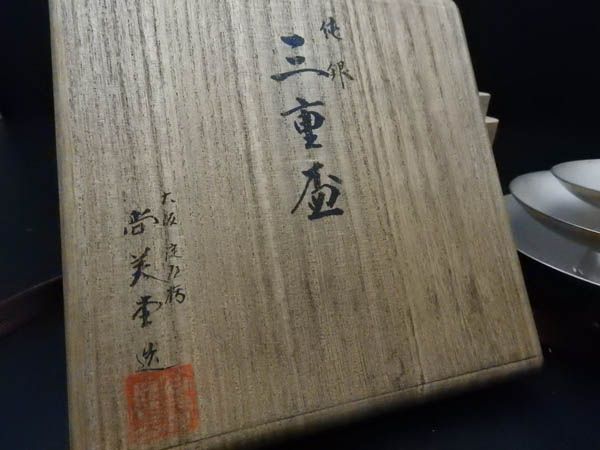 純銀
三重盃
大阪 淀屋橋
尚美堂造